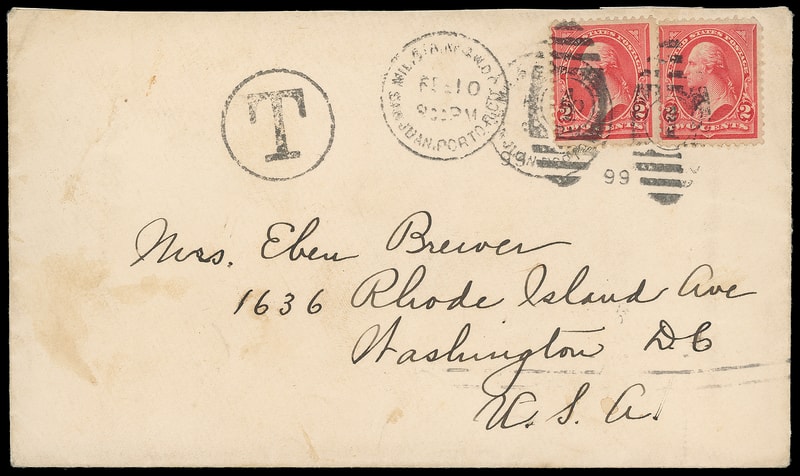 T
MIL. STA. No 1.
FEB 10
SAN JUAN. PORTO RICO.
99
UNITED STATES POSTAGE
2 TWO CENTS 2
UNITED STATES POSTAGE
2 TWO CENTS 2
Mrs. Eben Brewer
1636 Rhode Island Ave
Washington D.C
U. S. A.